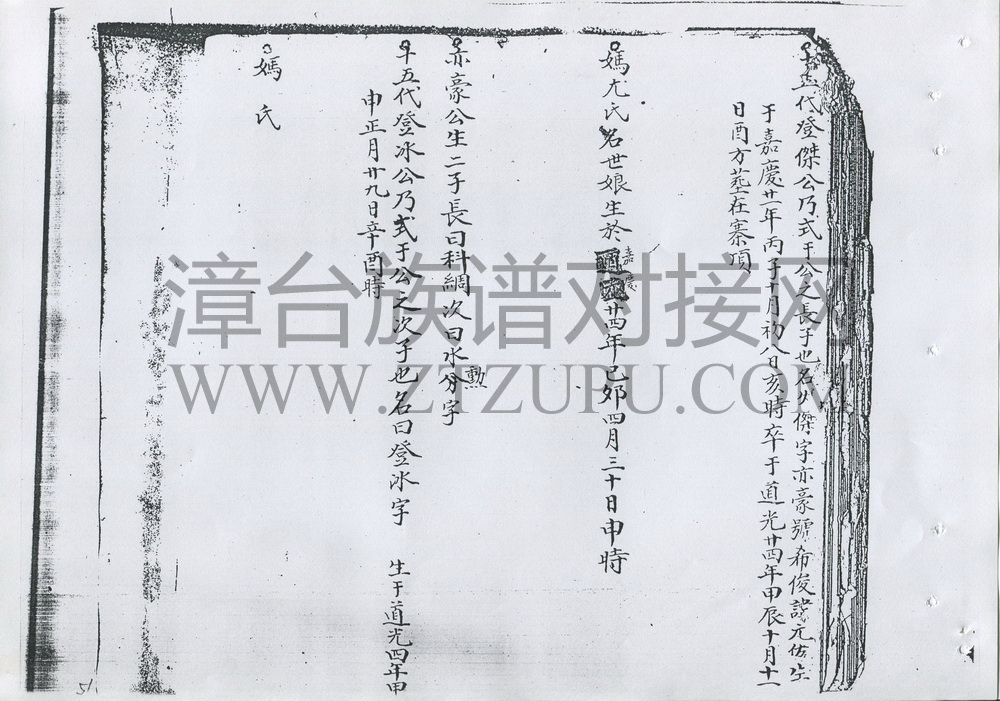 十五代登傑公乃式于公之長子也名登傑字亦豪號希俊諱元佑生
于嘉慶廿一年丙子十月初八日亥時卒于道光廿四年甲辰十月十一
日酉方塟在寨頂
媽尤氏名世娘生於嘉慶廿四年己卯四月三十日申時
亦豪公生二子長曰科綢次曰水分字勳
十五代登冰公乃式于公之次子也名曰登冰字 生于道光四年甲
申正月廿九日辛酉時
媽氏
漳台族谱对接网
WWW.ZTZUPU.COM
51